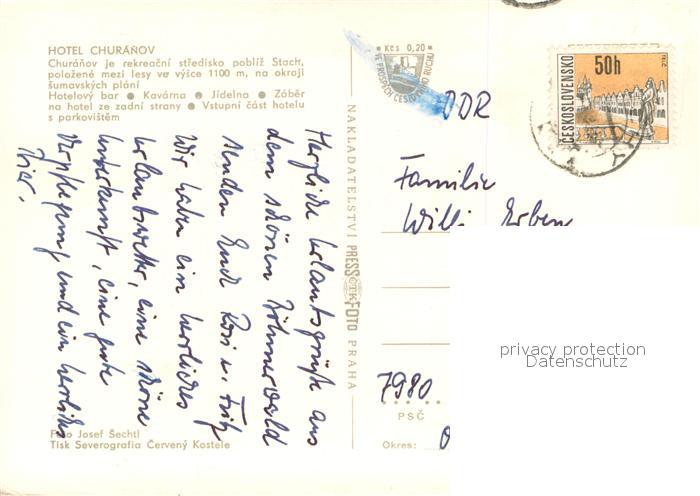 HOTEL CHURÁŇOV
Churáňov je rekreační středisko poblíž Stach,
položené mezi lesy ve výšce 1100 m, na okraji
šumavských plání
Hotelový bar ● Kavárna ● Jídelna ● Záběr
na hotel ze zadní strany ● Vstupní část hotelu
s parkovištěm
Herzliche Urlaubsgrüße aus
dem schönen Böhmerwald
senden Euch Rosi u. Fritz
Wir haben ein herrliches
Urlaubswetter, eine schöne
Unterkunft, eine gute
Verpflegung und ein herrliches
Foto Josef Šechtl
Tisk Severografia Červený Kostelec
NAKLADATELSTVÍ PRESSFOTO PRAHA
ČTK
Kčs 0,20
VE PROSPĚCH CESTOVNÍHO RUCHU
ČESKOSLOVENSKO
50h
TELČ
DDR
Familie
Willi Erben
7980
PSČ
Okres:
privacy protection
Datenschutz